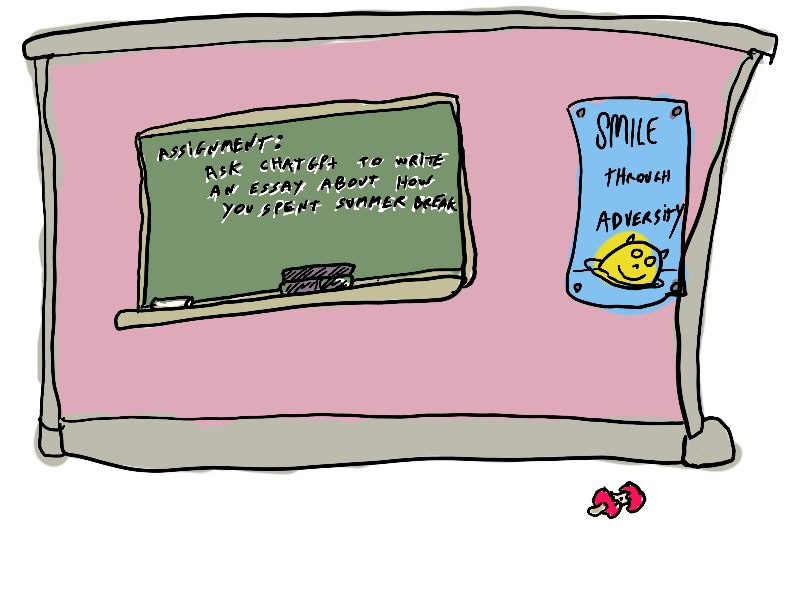 ASSIGNMENT:
ASK CHATGPT TO WRITE
AN ESSAY ABOUT HOW
YOU SPENT SUMMER BREAK
SMILE
THROUGH
ADVERSITY